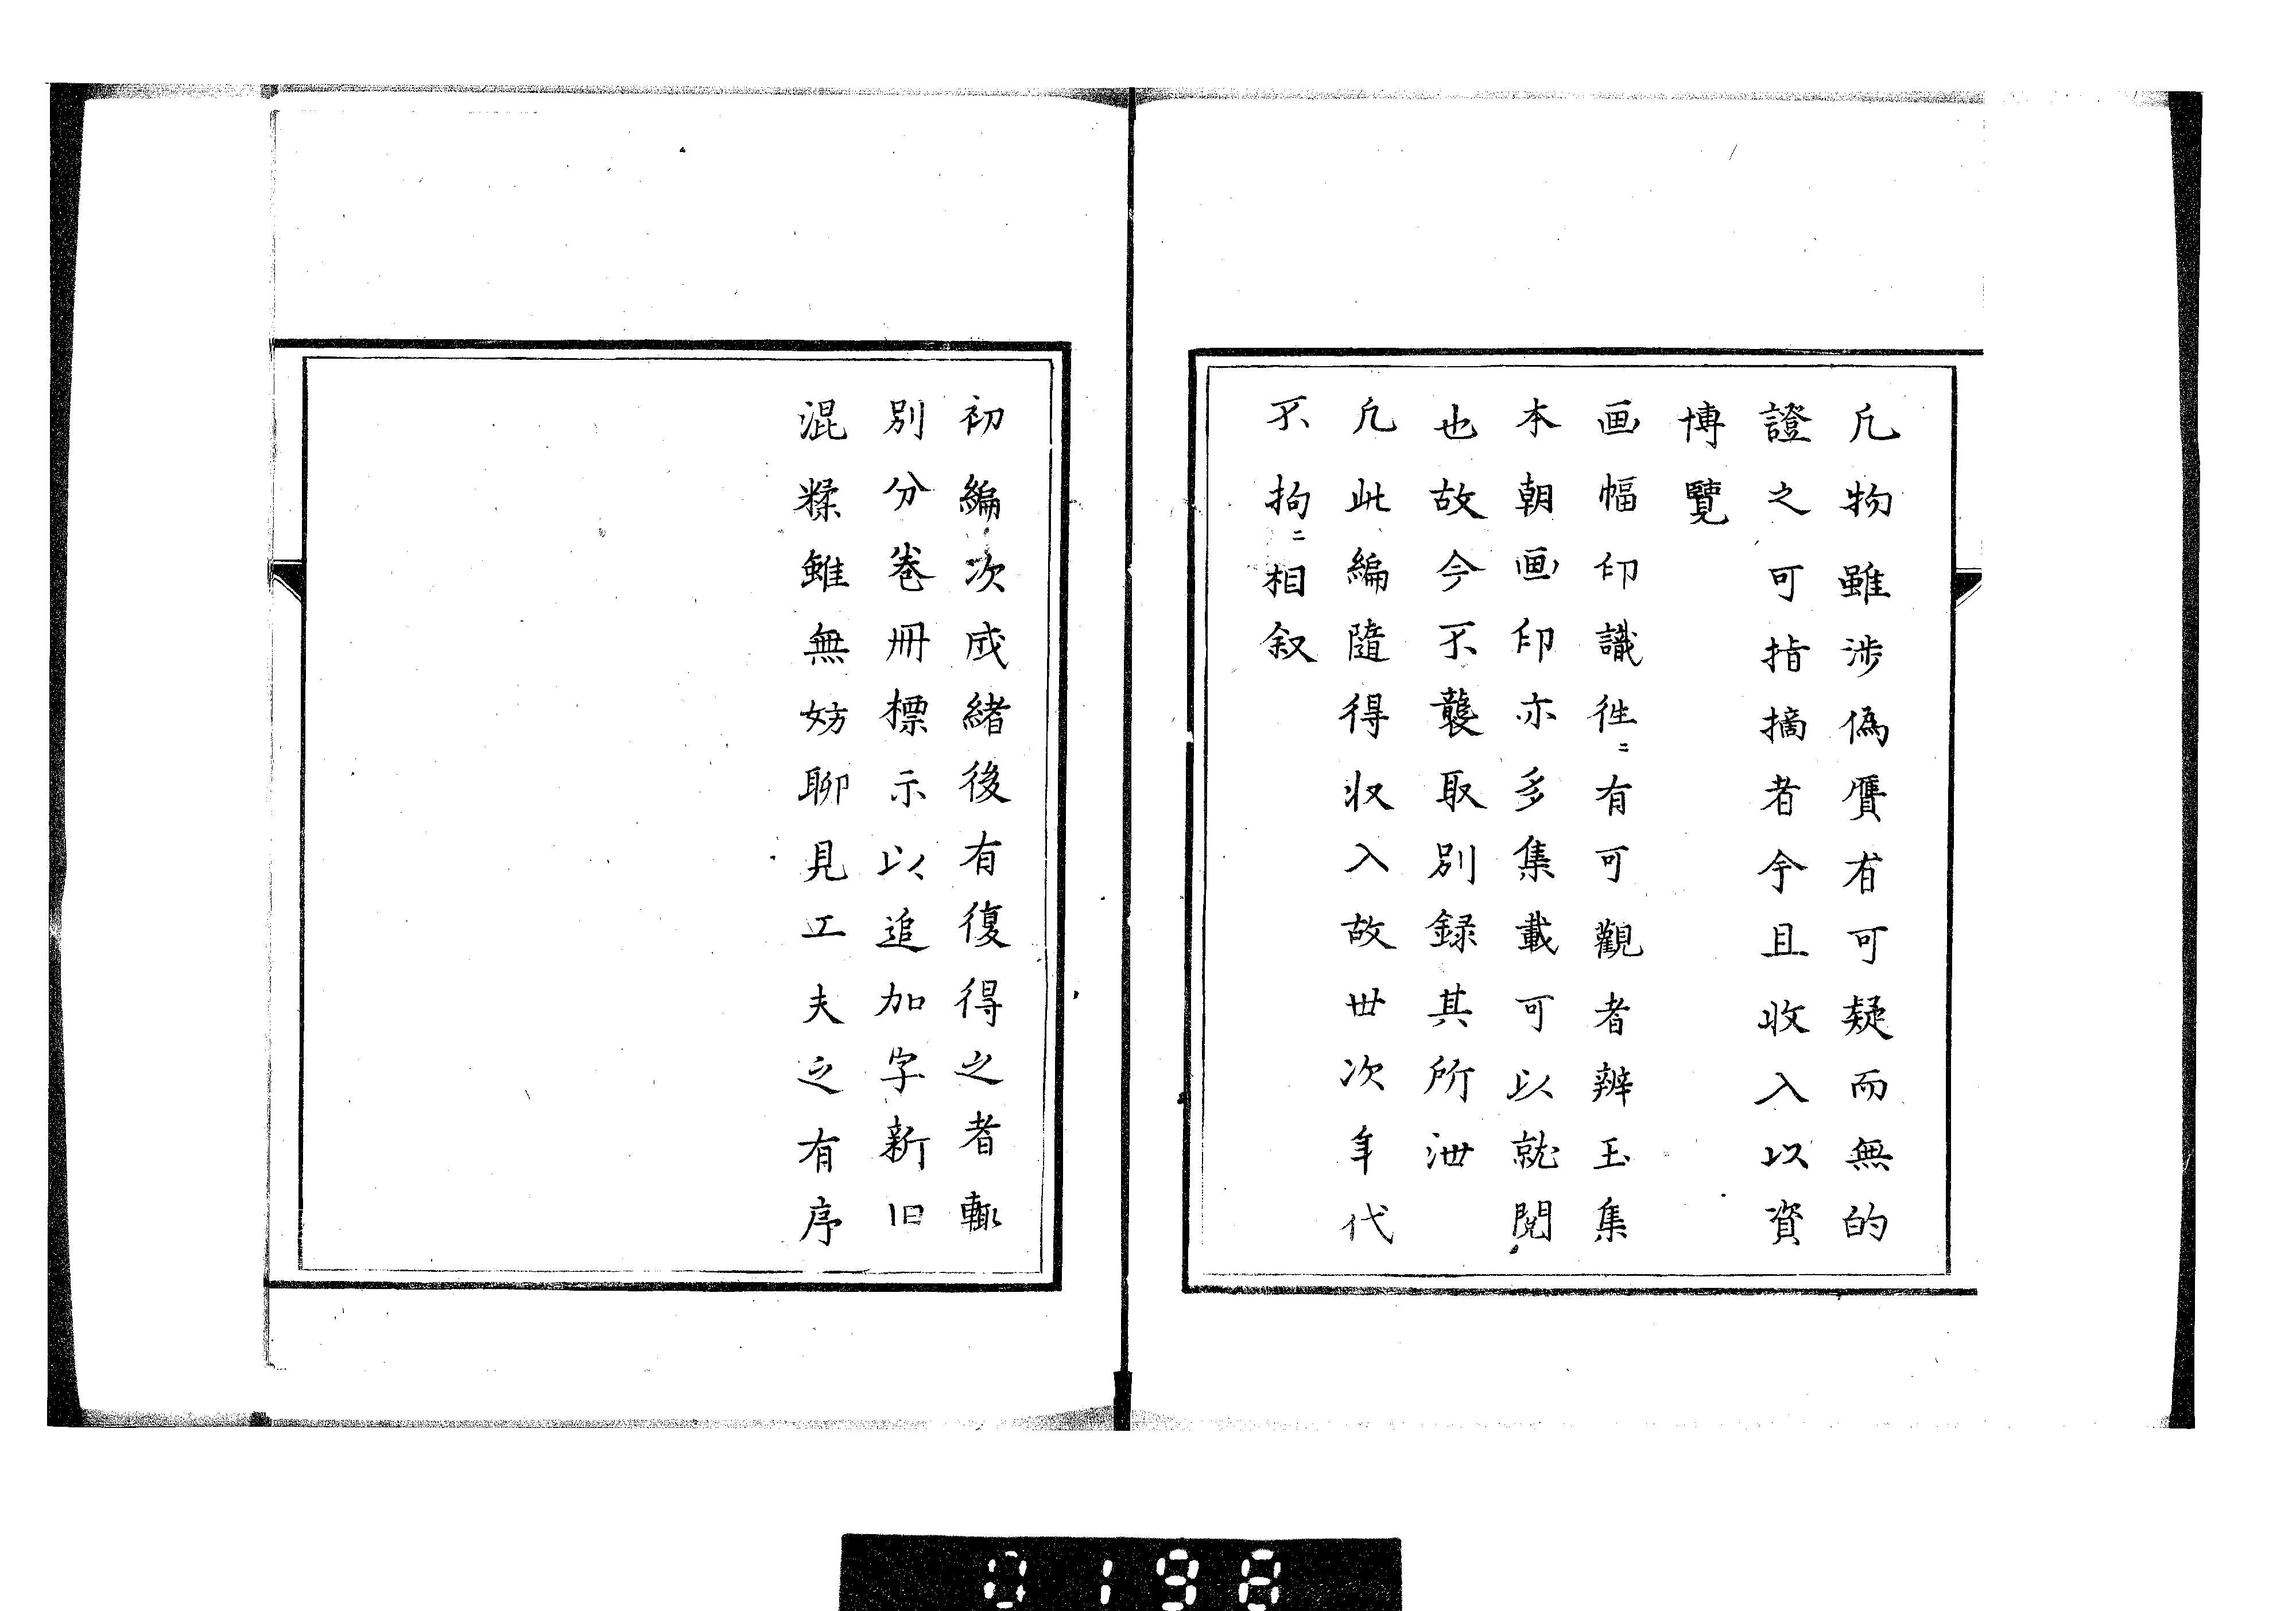 凢物雖渉偽贋有可疑而無的
證之可指摘者今且收入以資
博覽
画幅印識徃〻有可觀者辨玉集
本朝画印亦多集載可以就閲
也故今不襲取別録其所泄
凢此編隨得收入故世次年代
不拘〻相叙
初編次成緒後有復得之者輙
別分巻冊標示以追加字新旧
混糅雖無妨聊見工夫之有序
0198